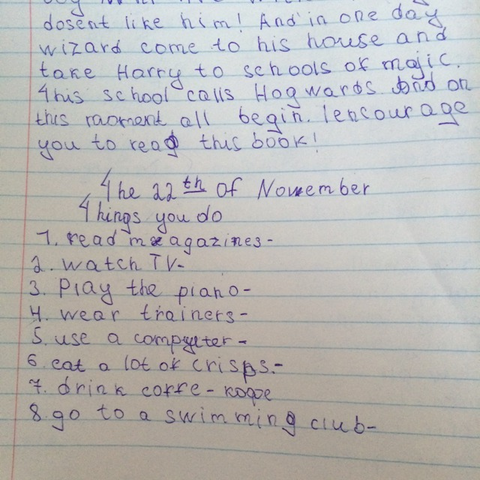 dosent like him! And in one day
wizard come to his house and
take Harry to schools of majic.
This school calls Hogwards And on
this moment all begin. Iencourage
you to read this book!
The 22th Of November
Things you do
1. read magazines-
2. watch TV-
3. Play the piano-
4. wear trainers-
5. use a computer-
6. eat a lot of crisps.-
7. drink coffe - кофе
8. go to a swimming club-